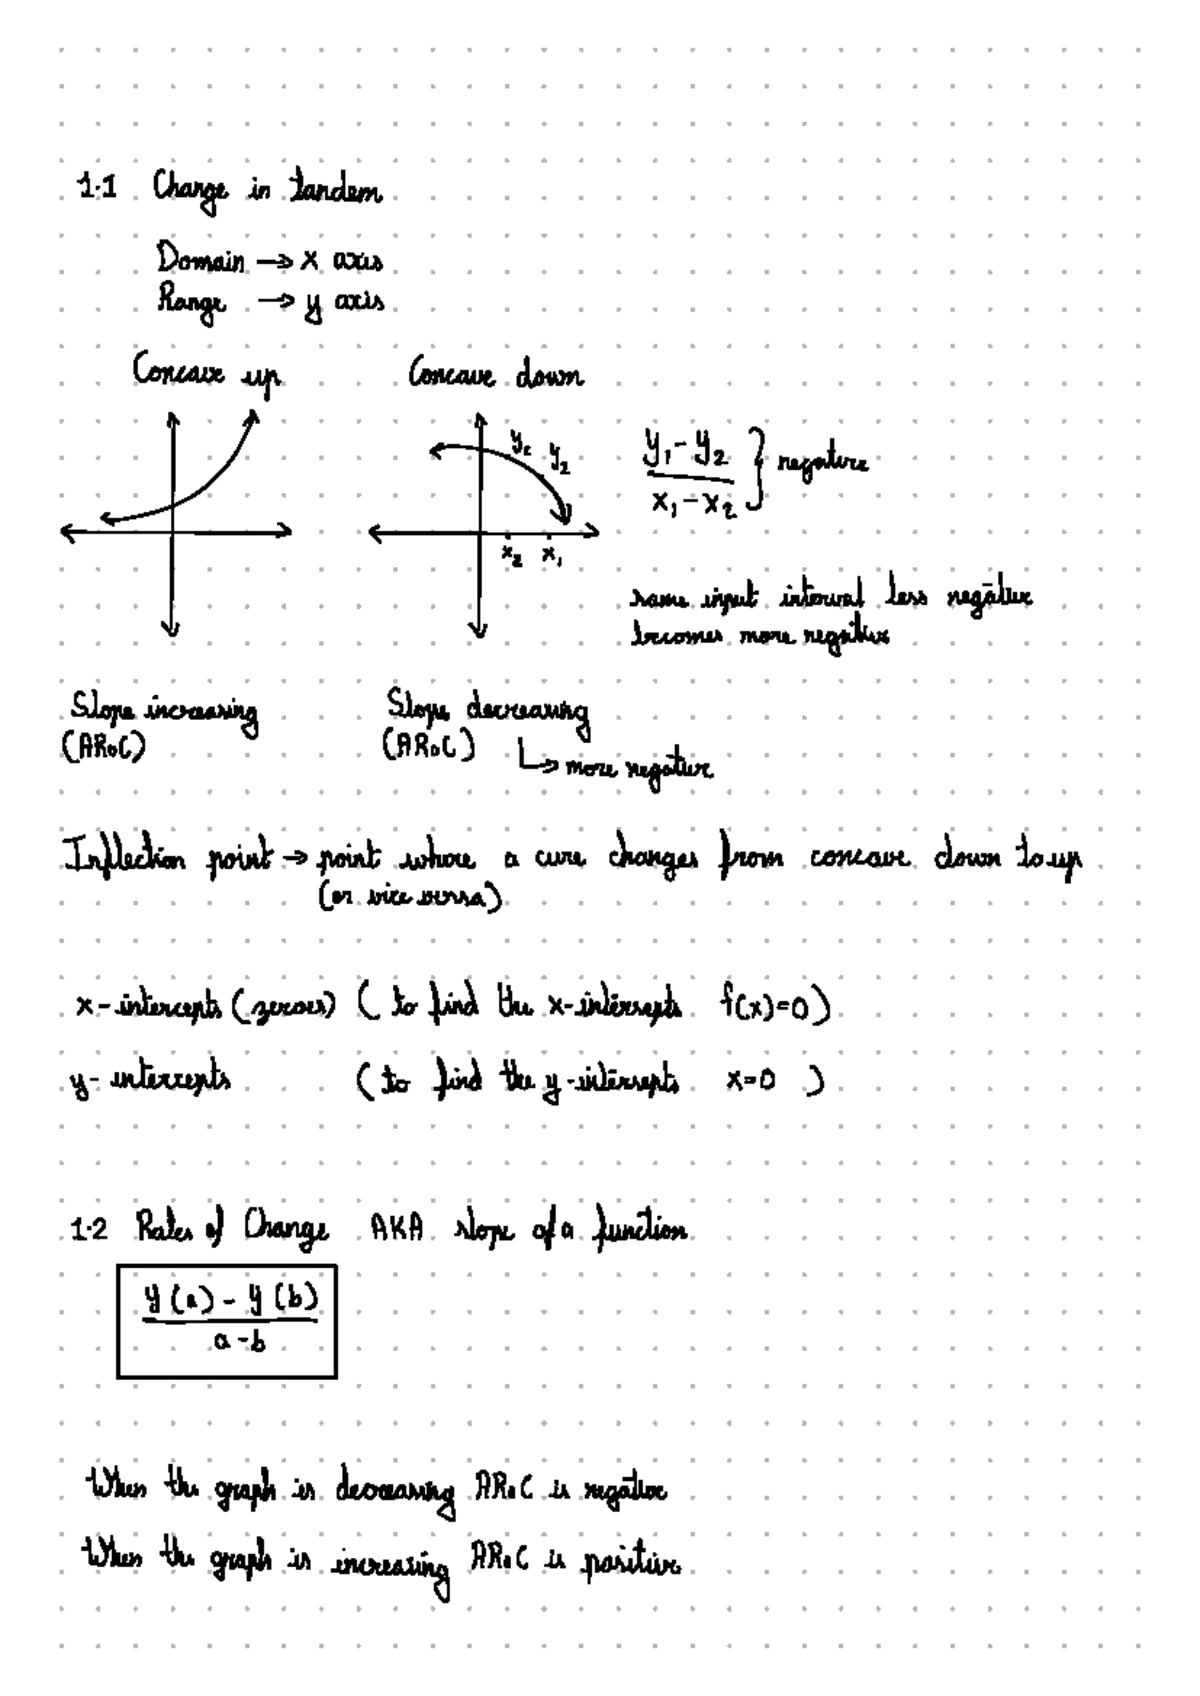 1.1 Change in tandem
Domain → x axis
Range → y axis
Concave up
Concave down
y₂ y₂
x₂ x₁
y₁ - y₂ / x₁ - x₂ } negative
same input interval less negative
becomes more negative
Slope increasing
(ARoC)
Slope decreasing
(ARoC)
↳ more negative
Inflection point → point where a cure changes from concave down to up
(or vice versa)
x-intercepts (zeroes) ( to find the x-intersepts f(x)=0)
y-intercepts ( to find the y-intersepts x=0 )
1.2 Rates of Change AKA slope of a function
y(a) - y(b)
a-b
When the graph is decreasing ARoC is negative
When the graph is increasing ARoC is positive